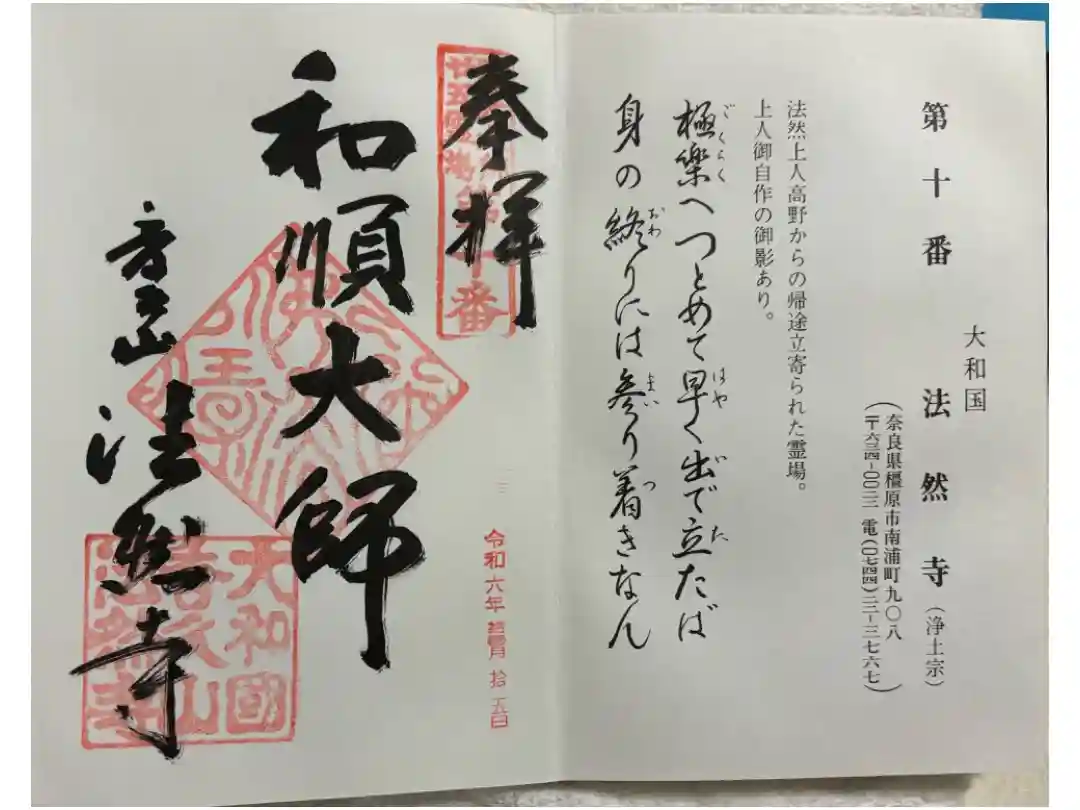 大和国
第十番 法然寺（浄土宗）
（奈良県橿原市南浦町九〇八
〒六三四-〇〇二二 電(〇七四四)二二-三七六七）
法然上人高野からの帰途立寄られた霊場。
上人御自作の御影あり。
ごくらく はや い た
極楽へつとめて早く出で立たば
おわ まい つ
身の終りには参り着きなん
奉拝
廿五霊場第十番
和順大師
香久山 法然寺
大和國
香久山
法然寺
令和六年 月 拾五日